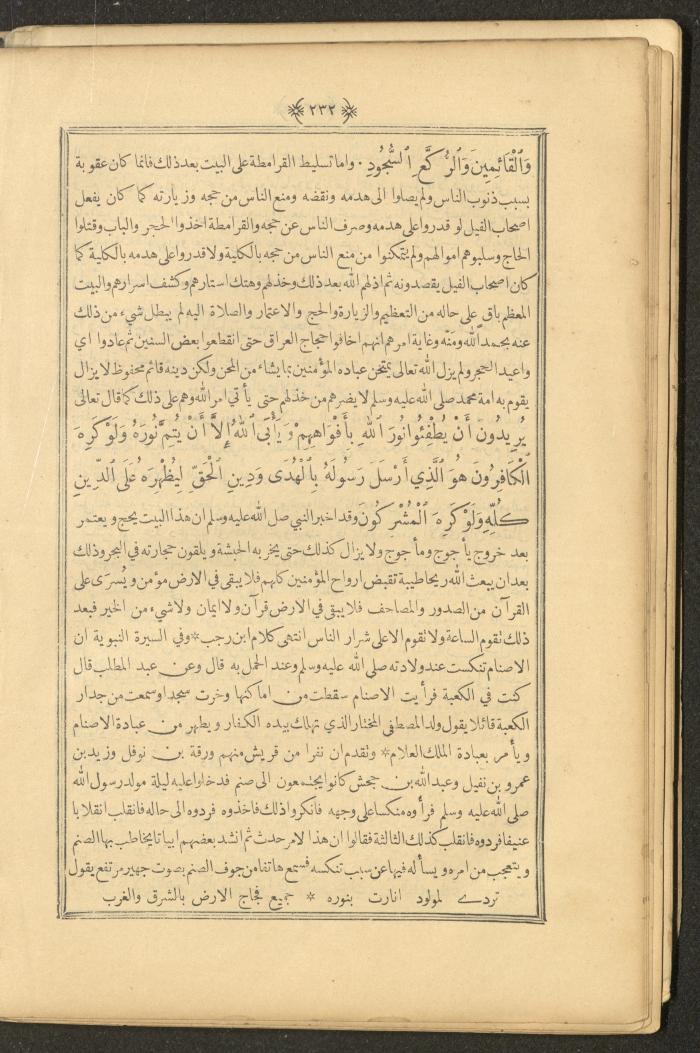 ٢٣٢
وَٱلْقَائِمِينَ وَٱلرُّكَّعِ ٱلسُّجُودِ. واما تسليط القرامطة على البيت بعد ذلك فانما كان عقوبة
بسبب ذنوب الناس ولم يصلوا الى هدمه ونقضه ومنع الناس من حجه وزيارته كما كان يفعل
اصحاب الفيل لو قدروا على هدمه وصرف الناس عن حجه والقرامطة اخذوا الحجر والباب وقتلوا
الحاج وسلبوهم اموالهم ولم يتمكنوا من منع الناس من حجه بالكلية ولا قدروا على هدمه بالكلية كما
كان اصحاب الفيل يقصدونه ثم اذلهم الله بعد ذلك وخذلهم وهتك استارهم وكشف اسرارهم والبيت
المعظم باق على حاله من التعظيم والزيارة والحج والاعتمار والصلاة اليه لم يبطل شيء من ذلك
عنه بحمد الله ومنّه وغاية امرهم انهم اخافوا حجاج العراق حتى انقطعوا بعض السنين ثم عادوا اي
واعيد الحجر ولم يزل الله تعالى يمتحن عباده المؤمنين بما يشاء من المحن ولكن دينه قائم محفوظ لا يزال
يقوم به امة محمد صلى الله عليه وسلم لا يضرهم من خذلهم حتى يأتي امر الله وهم على ذلك كما قال تعالى
يُرِيدُونَ أَنْ يُطْفِئُوا نُورَ ٱللهِ بِأَفْوَاهِهِمْ وَيَأْبَى ٱللهُ إِلاَّ أَنْ يُتِمَّ نُورَهُ وَلَوْ كَرِهَ
ٱلْكَافِرُونَ هُوَ ٱلَّذِي أَرْسَلَ رَسُولَهُ بِٱلْهُدَى وَدِينِ ٱلْحَقِّ لِيُظْهِرَهُ عَلَى ٱلدِّينِ
كُلِّهِ وَلَوْ كَرِهَ ٱلْمُشْرِكُونَ وقد اخبر النبي صلى الله عليه وسلم ان هذا البيت يحج ويعتمر
بعد خروج يأجوج ومأجوج ولا يزال كذلك حتى يخربه الحبشة ويلقون حجارته في البحر وذلك
بعد ان يبعث الله ريحا طيبة تقبض ارواح المؤمنين كلهم فلا يبقى في الارض مؤمن ويُسرَى على
القرآن من الصدور والمصاحف فلا يبقى في الارض قرآن ولا ايمان ولا شيء من الخير فبعد
ذلك تقوم الساعة ولا تقوم الا على شرار الناس انتهى كلام ابن رجب * وفي السيرة النبوية ان
الاصنام تنكست عند ولادته صلى الله عليه وسلم وعند الحمل به قال وعن عبد المطلب قال
كنت في الكعبة فرأيت الاصنام سقطت من اماكنها وخرت سجدا وسمعت من جدار
الكعبة قائلا يقول ولد المصطفى المختار الذي تهلك بيده الكفار ويطهر من عبادة الاصنام
ويأمر بعبادة الملك العلام * وتقدم ان نفرا من قريش منهم ورقة بن نوفل وزيد بن
عمرو بن نفيل وعبد الله بن جحش كانوا يجتمعون الى صنم فدخلوا عليه ليلة مولد رسول الله
صلى الله عليه وسلم فرأوه منكسا على وجهه فانكروا ذلك فاخذوه فردوه الى حاله فانقلب انقلابا
عنيفا فردوه فانقلب كذلك الثالثة فقالوا ان هذا لامر حدث ثم انشد بعضهم ابياتا يخاطب بها الصنم
ويتعجب من امره ويسأله فيها عن سبب تنكسه فسمع هاتفا من جوف الصنم بصوت جهير مرتفع يقول
تردى لمولود انارت بنوره * جميع فجاج الارض بالشرق والغرب